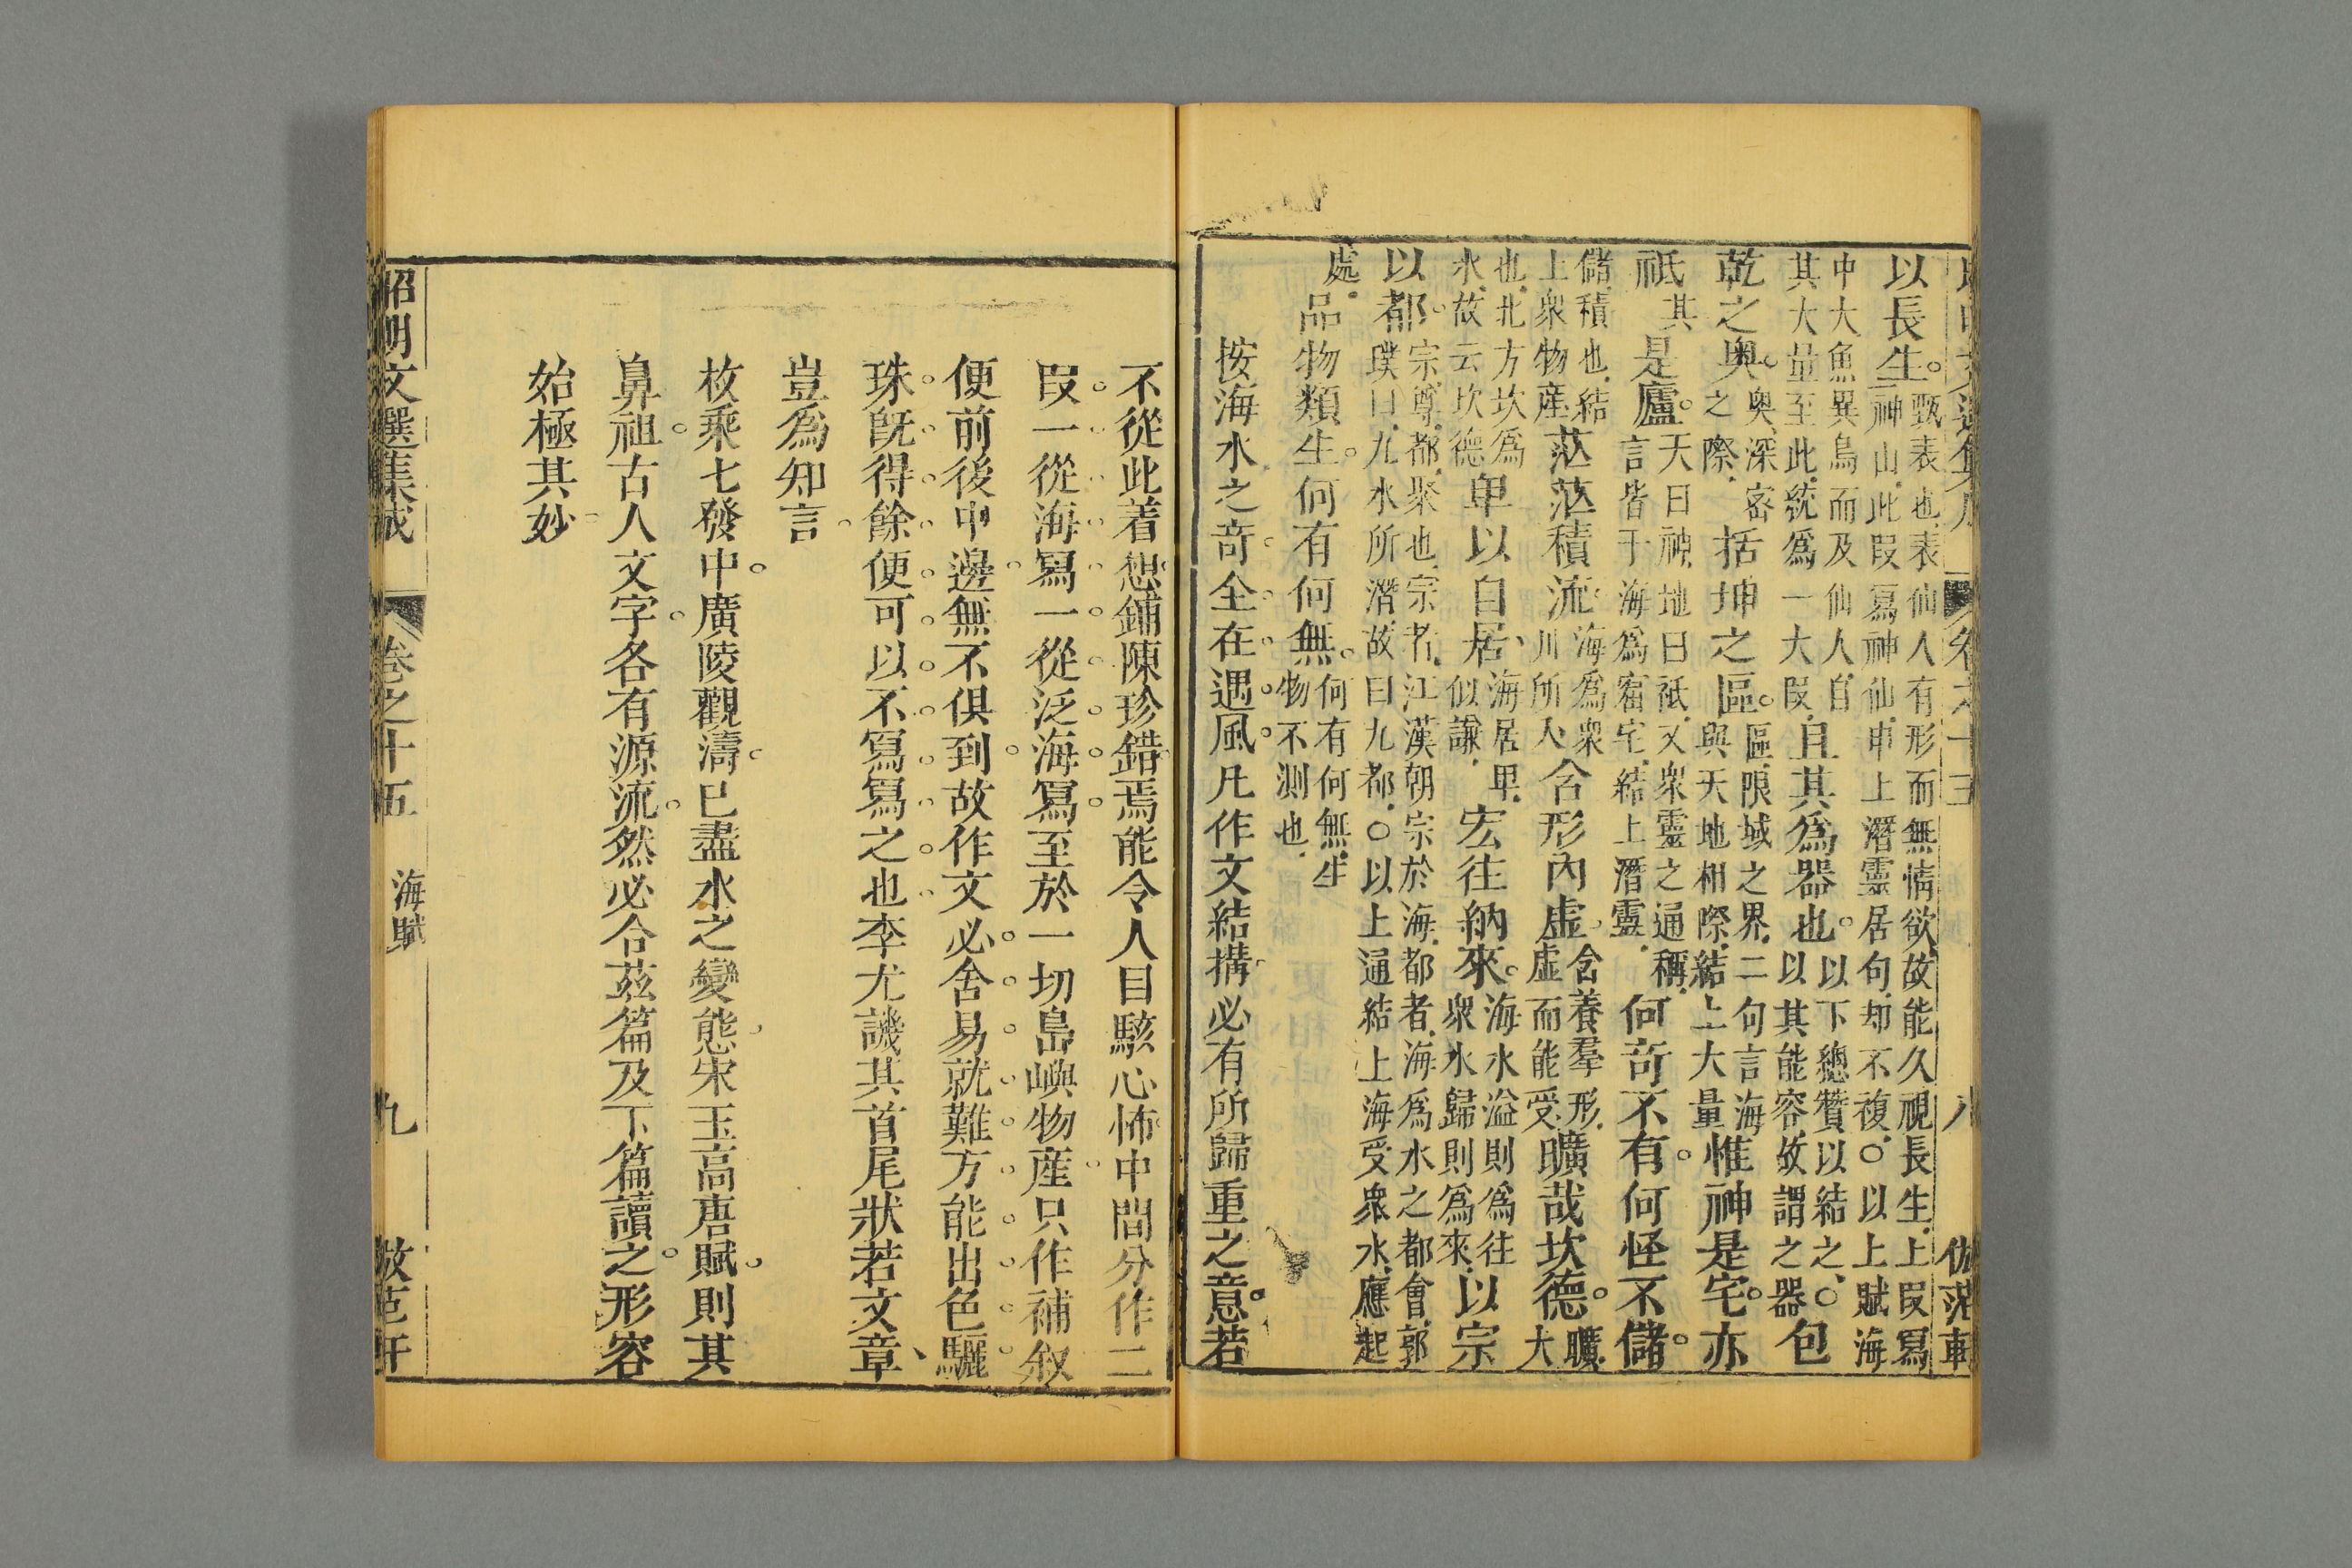 以長生。甄表也表仙人有形而無情欲故能久視長生上段寫
神山此段寫神仙申上潛靈居句却不複○以上賦海
中大魚異鳥而及仙人自
其大量至此統爲一大段且其爲器也。以下總贊以結之○
以其能容故謂之器包
乾之奥。奥深密
之際括坤之區。區限域之界二句言海
與天地相際結上大量惟神是宅。亦
祇其是廬。天曰神地曰祇又衆靈之通稱
言皆于海爲宿宅結上潛靈何奇不有。何怪不儲。
儲積也結
上衆物産茫茫積流海爲衆
川所入含形內虛含養羣形
虛而能受曠哉坎德。曠
大
也北方坎爲
水故云坎德卑以自居、海居卑
似謙宏往納來。海水溢則爲往
衆水歸則爲來以宗
以都。宗尊都聚也宗者江漢朝宗於海都者海爲水之都會郭
璞曰九水所潛故曰九都○以上通結上海受衆水應起
處品物類生。何有何無。何有何無生
物不測也
按海水之奇全在遇風凡作文結搆必有所歸重之意若
不從此着想鋪陳珍錯焉能令人目駭心怖中間分作二
段一從海寫一從泛海寫至於一切島嶼物産只作補叙
便前後中邊無不俱到故作文必舍易就難方能出色驪
珠旣得餘便可以不寫寫之也李尤譏其首尾狀若文章
豈爲知言
枚乘七發中廣陵觀濤已盡水之變態宋玉高唐賦則其
鼻祖古人文字各有源流然必合茲篇及下篇讀之形容
始極其妙
昭明文選集成 卷之十五 海賦 九 倣范軒